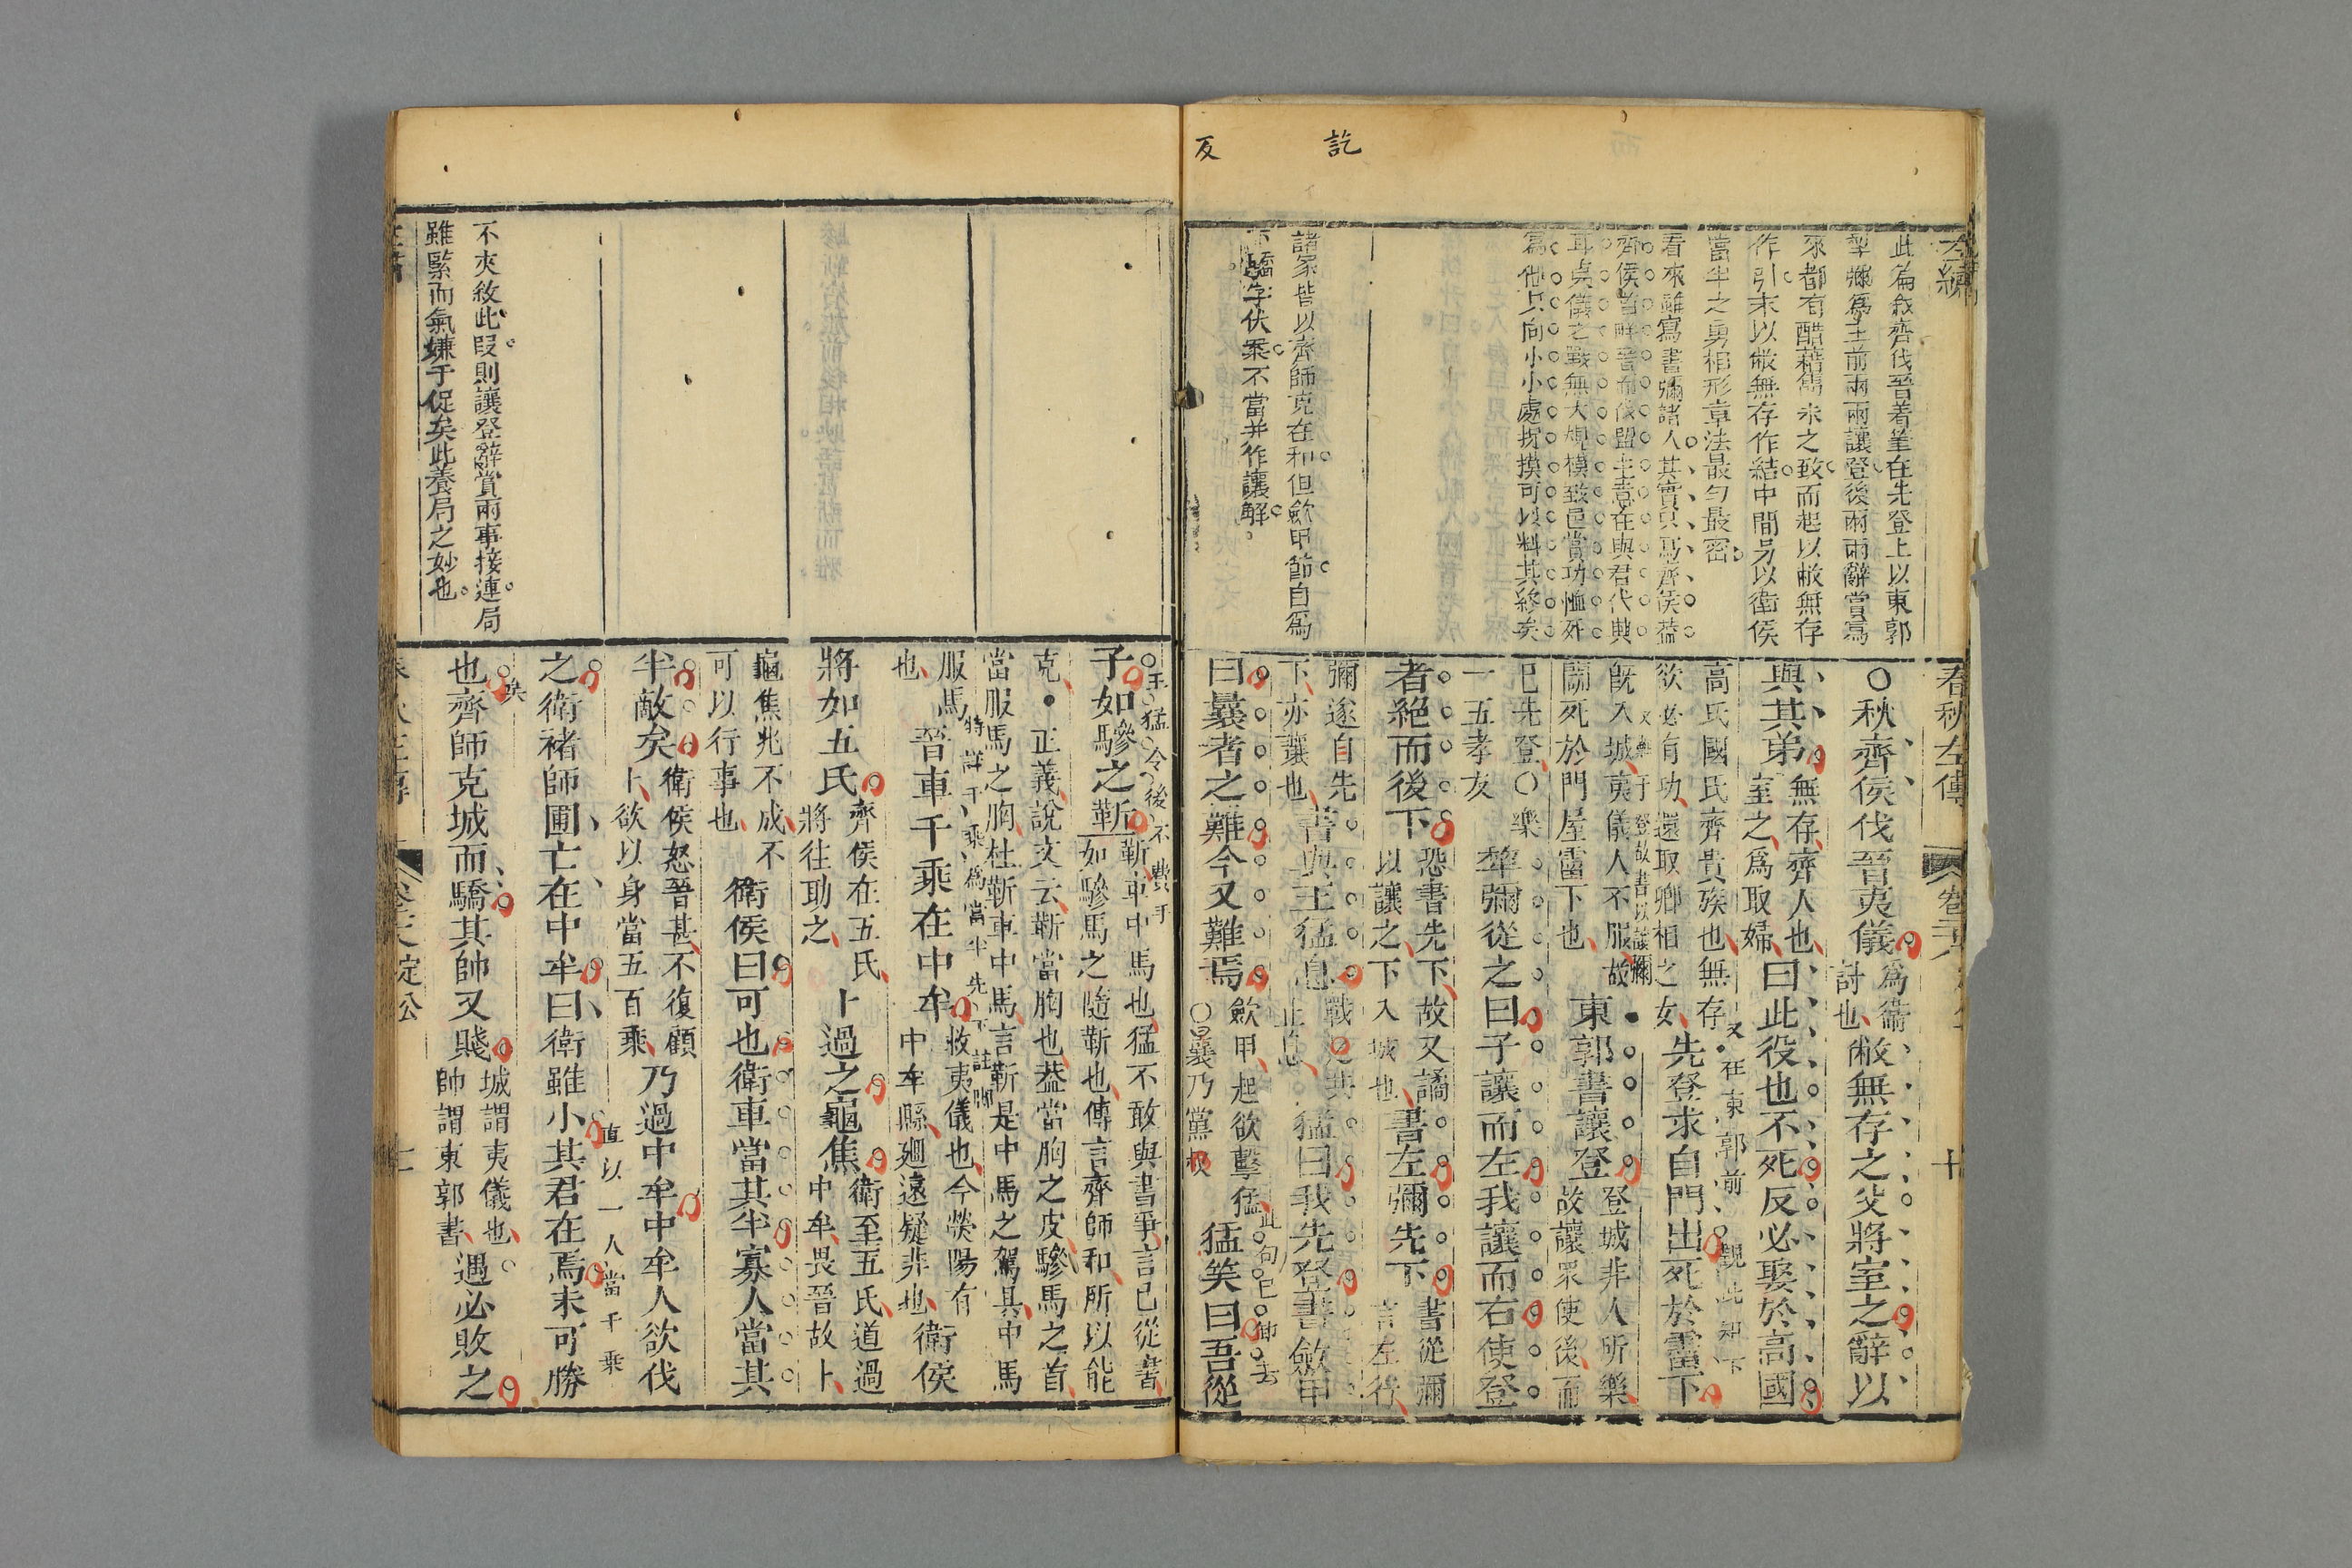 訖
反
左繡
此篇敘齊伐晉着筆在先登上以東郭
犂彌爲主前兩兩讓登後兩兩辭賞寫
來都有醖藉雋永之致而起以敝無存
作引末以敝無存作結中間另以衛侯
當半之勇相形章法最勻最密
看來雖寫書彌諸人其實只爲齊侯葢
齊侯首畔晉而後盟主意在與君代興
耳夷儀之戰無大規模致邑當功恤死
爲他只向小小處描摸可以料其終矣
諸家皆以齊師克在和但歛甲節自爲
下驕字伏案不當并作讓解
春秋左傳
卷二十八
十
○秋齊侯伐晉夷儀
爲衞
討也
敝無存之父將室之辭以
與其弟
無存齊人也
室之爲取婦
曰此役也不死反必娶於高國
高氏國氏齊貴族也無存
欲必有功還取卿相之女
又在東郭前
先登求自門出死於霤下
觀此知下
旣入城夷儀人不服故
鬭死於門屋霤下也
東郭書讓登
登城非人所樂
故讓眾使後而
已先登○樂
一五孝反
犂彌從之曰子讓而左我讓而右使登
者絕而後下
恐書先下故又譎
以讓之下入城也
書左彌先下
書從彌
言左行
彌遂自先
下亦讓也
書與王猛息
戰訖共
止息
猛曰我先登書斂甲
曰曩者之難今又難焉
歛甲起欲擊猛
○曩乃黨反
此句已卸去
猛笑曰吾從
王猛令後不費手
子如驂之靳
靳車中馬也猛不敢與書爭言已從書
如驂馬之隨靳也傳言齊師和所以能
克・正義說文云靳當胸也葢當胸之皮驂馬之首
當服馬之胸杜靳車中馬言靳是中馬之駕具中馬
服馬
也
特詳千乘爲當半先下註脚
晉車千乘在中牟
救夷儀也今滎陽有
中牟縣迴遠疑非也
衛侯
將如五氏
齊侯在五氏
將往助之
卜過之龜焦
衛至五氏道過
中牟畏晉故卜
龜焦兆不成不
可以行事也
衛侯曰可也衛車當其半寡人當其
半敵矣
衛侯怒晉甚不復顧
卜欲以身當五百乘
乃過中牟中牟人欲伐
直以一人當千乘
之衛褚師圃亡在中牟曰衛雖小其君在焉未可勝
也齊師克城而驕其帥又賤
城謂夷儀也
帥謂東郭書
遇必敗之
不夾敘此段則讓登辭賞兩事接連局
雖緊而氣嫌于促矣此養局之妙也